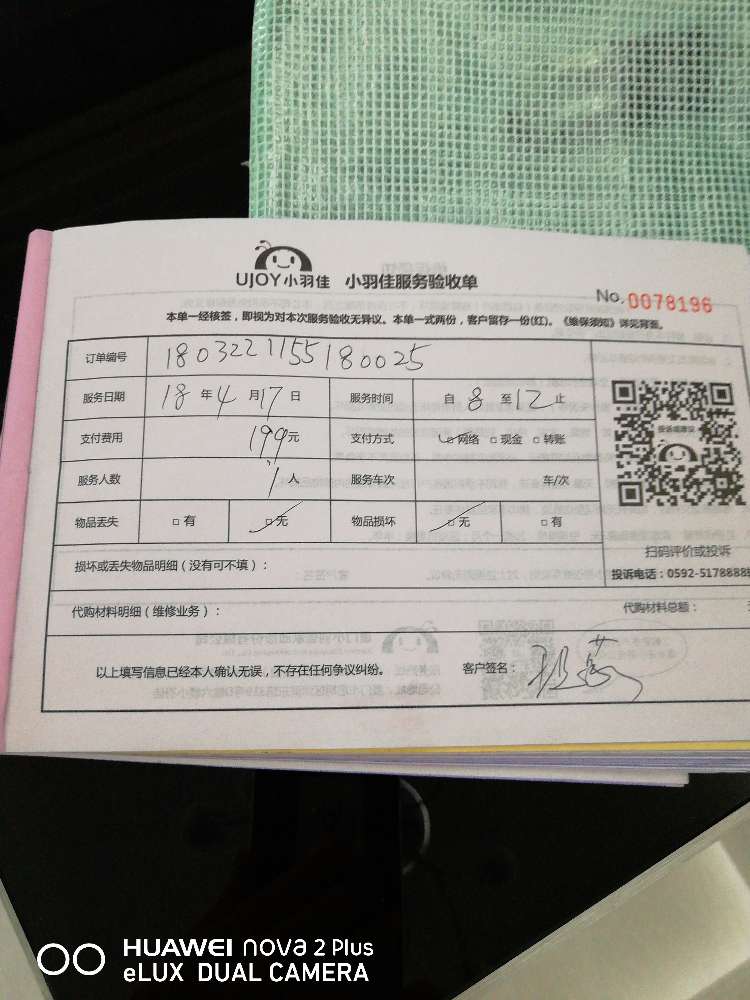 UJOY小羽佳 小羽佳服务验收单
No. 0078196
本单一经核签，即视为对本次服务验收无异议。本单一式两份，客户留存一份(红)。《维保须知》详见背面。
订单编号 1803221155180025
服务日期 18 年 4 月 17 日 服务时间 自 8 至 12 止
支付费用 199 元 支付方式 网络 □ 现金 □ 转账
服务人数 1 人 服务车次 车/次
物品丢失 □ 有 □ 无 物品损坏 □ 无 □ 有
投诉或建议
扫码评价或投诉
投诉电话：0592-5178888
损坏或丢失物品明细（没有可不填）：
代购材料明细（维修业务）： 代购材料总额：
以上填写信息已经本人确认无误，不存在任何争议纠纷。 客户签名：
HUAWEI nova 2 Plus
eLUX DUAL CAMERA